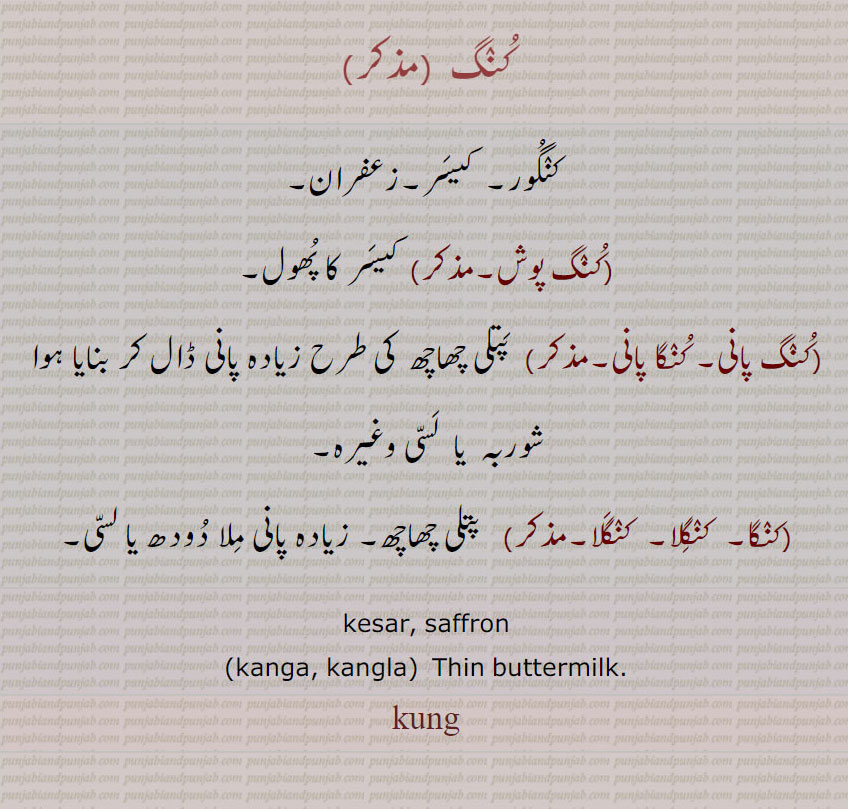 کُنْگ (مذکر)
کنْگُور۔ کیسَر۔زعفران۔
(کُنْگ پوش۔مذکر) کیسَر کا پُھول۔
(کُنْگ پانی۔کُنْگا پانی۔مذکر) پَتلی چھاچھ کی طرح زیادہ پانی ڈال کر بنایا ہوا
شوربہ یا لَسّی وغیرہ۔
(کَنْگا۔ کنْگِلا۔ کنْگَلا۔مذکر) پتلی چھاچھ۔ زیادہ پانی مِلا دُودھ یا لسّی۔
kesar, saffron
(kanga, kangla) Thin buttermilk.
kung
punjabiandpunjab.com